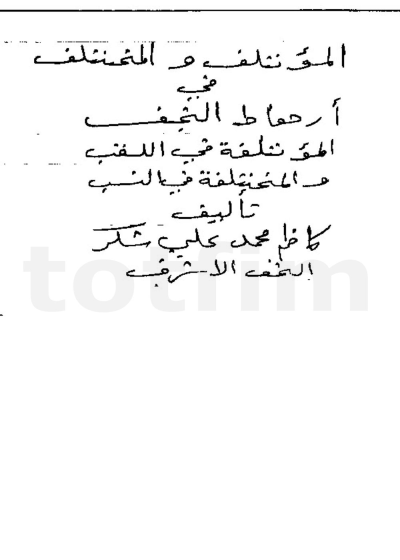 المؤتلف و المختلف
في
أرهاط النجف
المؤتلفة في اللقب
و المختلفة في النسب
تأليف
كاظم محمد علي شكر
النجف الاشرف
totfim